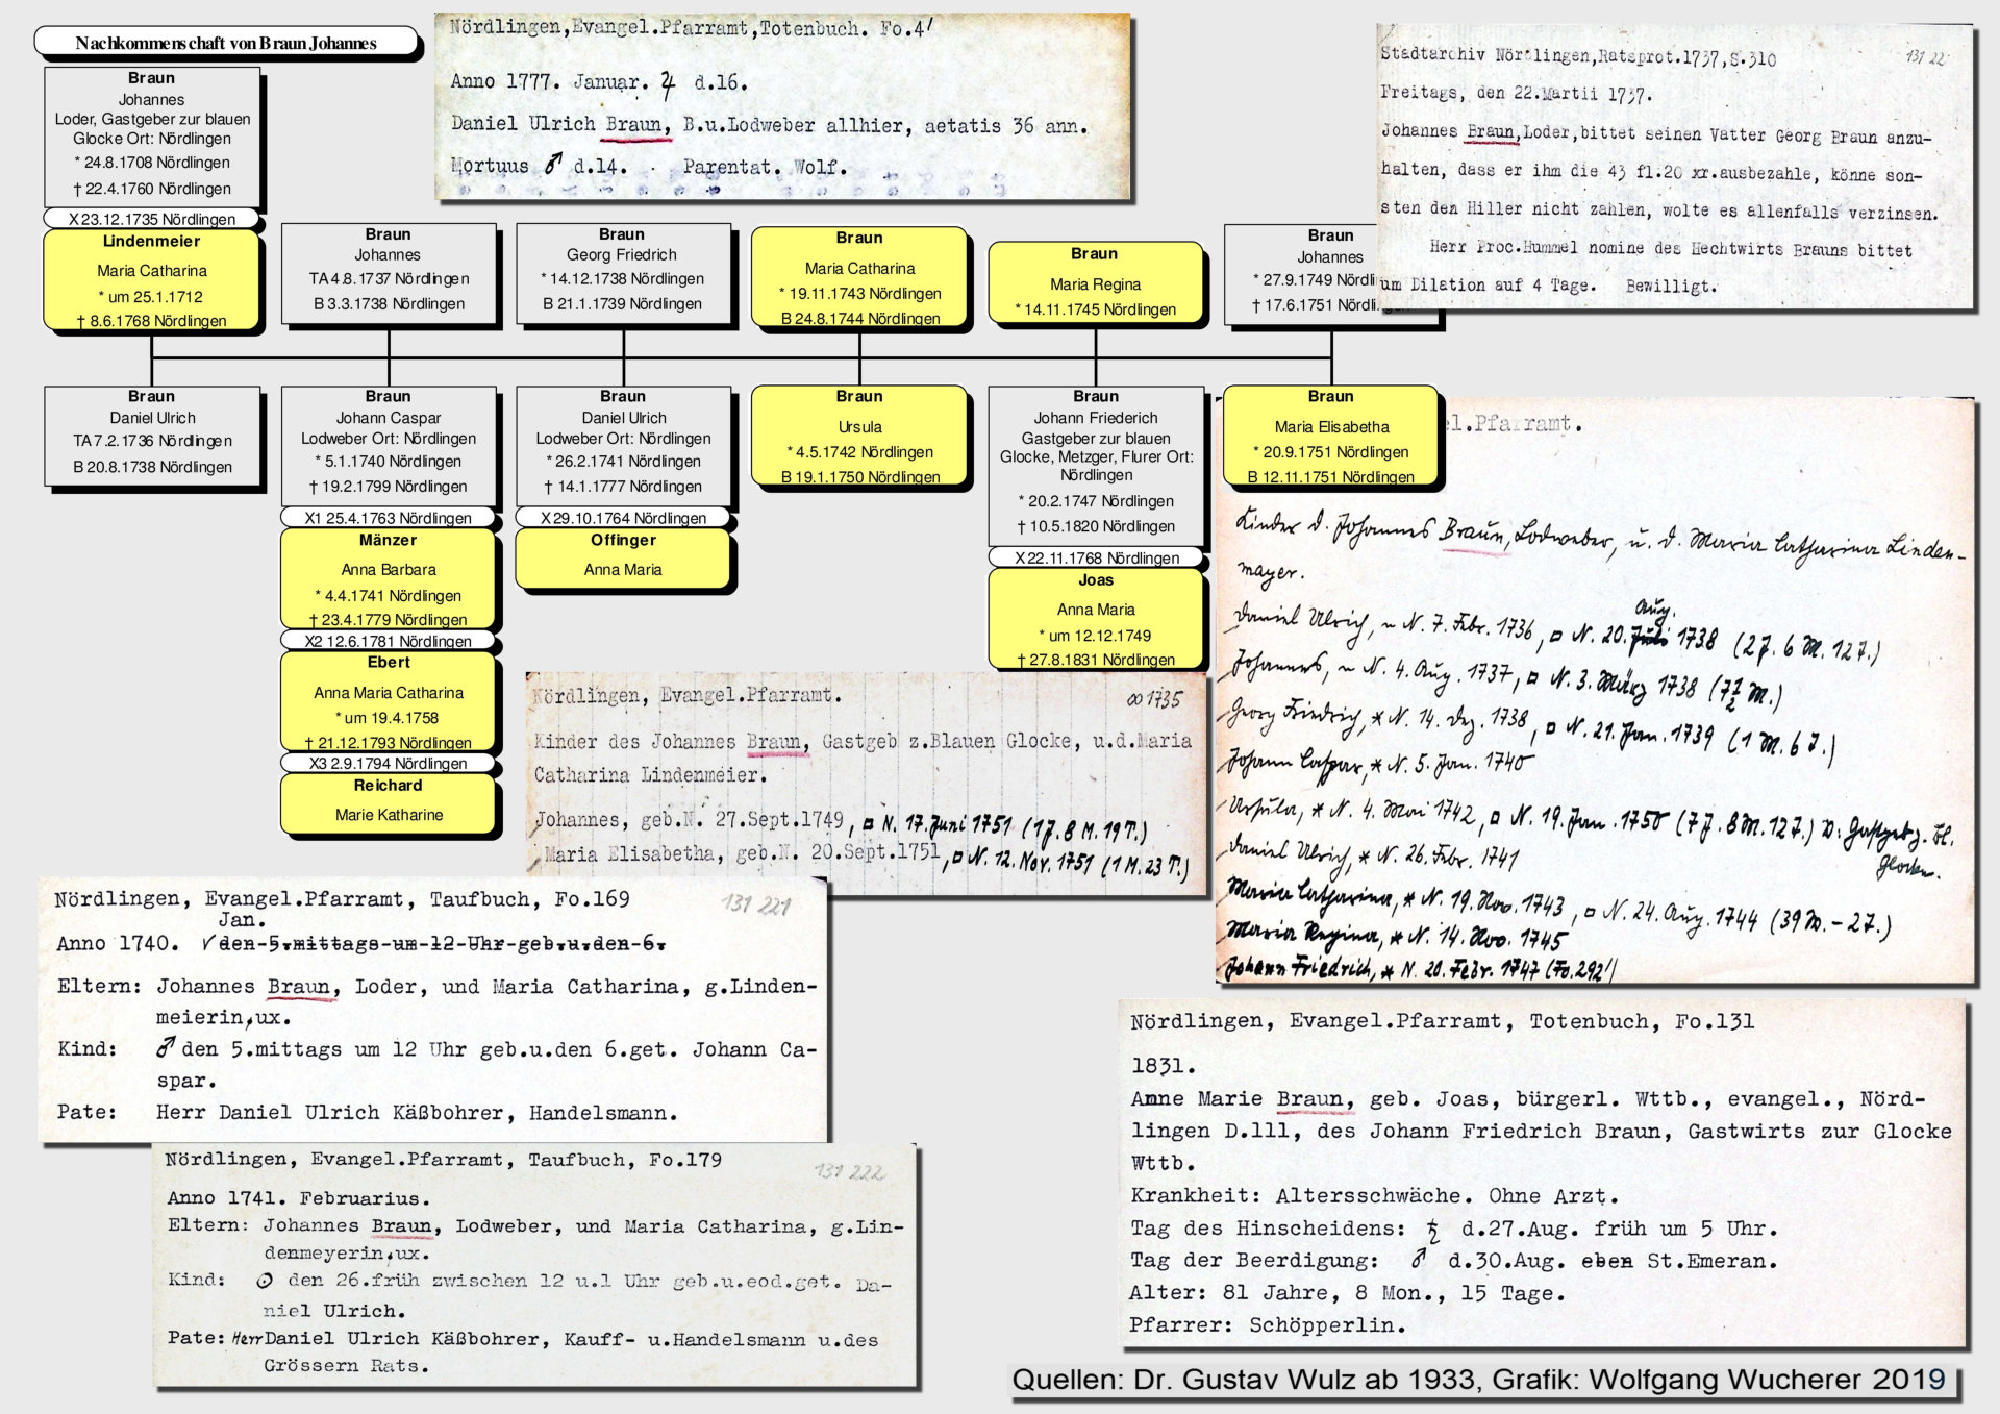 Nachkommenschaft von Braun Johannes
Braun
Johannes
Loder, Gastgeber zur blauen
Glocke Ort: Nördlingen
* 24.8.1708 Nördlingen
† 22.4.1760 Nördlingen
X 23.12.1735 Nördlingen
Lindenmeier
Maria Catharina
* um 25.1.1712
† 8.6.1768 Nördlingen
Braun
Johannes
TA 4.8.1737 Nördlingen
B 3.3.1738 Nördlingen
Braun
Georg Friedrich
* 14.12.1738 Nördlingen
B 21.1.1739 Nördlingen
Braun
Maria Catharina
* 19.11.1743 Nördlingen
B 24.8.1744 Nördlingen
Braun
Maria Regina
* 14.11.1745 Nördlingen
Braun
Johannes
* 27.9.1749 Nördli
† 17.6.1751 Nördlingen
Braun
Daniel Ulrich
TA 7.2.1736 Nördlingen
B 20.8.1738 Nördlingen
Braun
Johann Caspar
Lodweber Ort: Nördlingen
* 5.1.1740 Nördlingen
† 19.2.1799 Nördlingen
X1 25.4.1763 Nördlingen
Mänzer
Anna Barbara
* 4.4.1741 Nördlingen
† 23.4.1779 Nördlingen
X2 12.6.1781 Nördlingen
Ebert
Anna Maria Catharina
* um 19.4.1758
† 21.12.1793 Nördlingen
X3 2.9.1794 Nördlingen
Reichard
Marie Katharine
Braun
Daniel Ulrich
Lodweber Ort: Nördlingen
* 26.2.1741 Nördlingen
† 14.1.1777 Nördlingen
X 29.10.1764 Nördlingen
Offinger
Anna Maria
Braun
Ursula
* 4.5.1742 Nördlingen
B 19.1.1750 Nördlingen
Braun
Johann Friederich
Gastgeber zur blauen
Glocke, Metzger, Flurer Ort:
Nördlingen
* 20.2.1747 Nördlingen
† 10.5.1820 Nördlingen
X 22.11.1768 Nördlingen
Joas
Anna Maria
* um 12.12.1749
† 27.8.1831 Nördlingen
Braun
Maria Elisabetha
* 20.9.1751 Nördlingen
B 12.11.1751 Nördlingen
Nördlingen,Evangel.Pfarramt,Totenbuch. Fo.4'
Anno 1777. Januar. ♃ d.16.
Daniel Ulrich Braun, B.u.Lodweber allhier, aetatis 36 ann.
Mortuus ♂ d.14. Parentat. Wolf.
Stadtarchiv Nördlingen,Ratsprot.1737,S.310
131 22
Freitags, den 22.Martii 1737.
Johannes Braun,Loder,bittet seinen Vatter Georg Braun anzu-
halten, dass er ihm die 43 fl.20 xr.ausbezahle, könne son-
sten den Hiller nicht zahlen, wolte es allenfalls verzinsen.
Herr Proc.Hummel nomine des Hechtwirts Brauns bittet
um Dilation auf 4 Tage. Bewilligt.
el.Pfarramt.
Kinder d. Johannes Braun, Lodweber, u. d. Maria Catharina Linden-
mayer.
Daniel Ulrich, ~ N. 7. Febr. 1736, □ N. 20. Juli Aug. 1738 (2 J. 6 M. 12 T.)
Johannes, ~ N. 4. Aug. 1737, □ N. 3. März 1738 (7½ M.)
Georg Friedrich, * N. 14. Dez. 1738, □ N. 21. Jan. 1739 (1 M. 6 T.)
Johann Caspar, * N. 5. Jan. 1740
Ursula, * N. 4. Mai 1742, □ N. 19. Jan. 1750 (7 J. 8 M. 12 T.) V: Gastgeb z. bl.
Glocken.
Daniel Ulrich, * N. 26. Febr. 1741
Maria Catharina, * N. 19. Nov. 1743, □ N. 24. Aug. 1744 (39 W. - 2 T.)
Maria Regina, * N. 14. Nov. 1745
Johann Friedrich, * N. 20. Febr. 1747 (Fo.292')
Nördlingen, Evangel.Pfarramt.
∞ 1735
Kinder des Johannes Braun, Gastgeb z.Blauen Glocke, u.d.Maria
Catharina Lindenmeier.
Johannes, geb.N. 27.Sept.1749, □ N. 17. Juni 1751 (1 J. 8 M. 19 T.)
Maria Elisabetha, geb.N. 20.Sept.1751, □ N. 12. Nov. 1751 (1 M. 23 T.)
Nördlingen, Evangel.Pfarramt, Taufbuch, Fo.169
131 221
Jan.
Anno 1740. ✓ den 5.mittags um 12 Uhr geb.u.den 6.
Eltern: Johannes Braun, Loder, und Maria Catharina, g.Linden-
meierin,ux.
Kind: ♂ den 5.mittags um 12 Uhr geb.u.den 6.get. Johann Ca-
spar.
Pate: Herr Daniel Ulrich Käßbohrer, Handelsmann.
Nördlingen, Evangel.Pfarramt, Taufbuch, Fo.179
131 222
Anno 1741. Februarius.
Eltern: Johannes Braun, Lodweber, und Maria Catharina, g.Lin-
denmeyerin,ux.
Kind: ☉ den 26.früh zwischen 12 u.1 Uhr geb.u.eod.get. Da-
niel Ulrich.
Pate: Herr Daniel Ulrich Käßbohrer, Kauff- u.Handelsmann u.des
Grössern Rats.
Nördlingen, Evangel.Pfarramt, Totenbuch, Fo.131
1831.
Anne Marie Braun, geb. Joas, bürgerl. Wttb., evangel., Nörd-
lingen D.111, des Johann Friedrich Braun, Gastwirts zur Glocke
Wttb.
Krankheit: Altersschwäche. Ohne Arzt.
Tag des Hinscheidens: ♄ d.27.Aug. früh um 5 Uhr.
Tag der Beerdigung: ♂ d.30.Aug. eben St.Emeran.
Alter: 81 Jahre, 8 Mon., 15 Tage.
Pfarrer: Schöpperlin.
Quellen: Dr. Gustav Wulz ab 1933, Grafik: Wolfgang Wucherer 2019